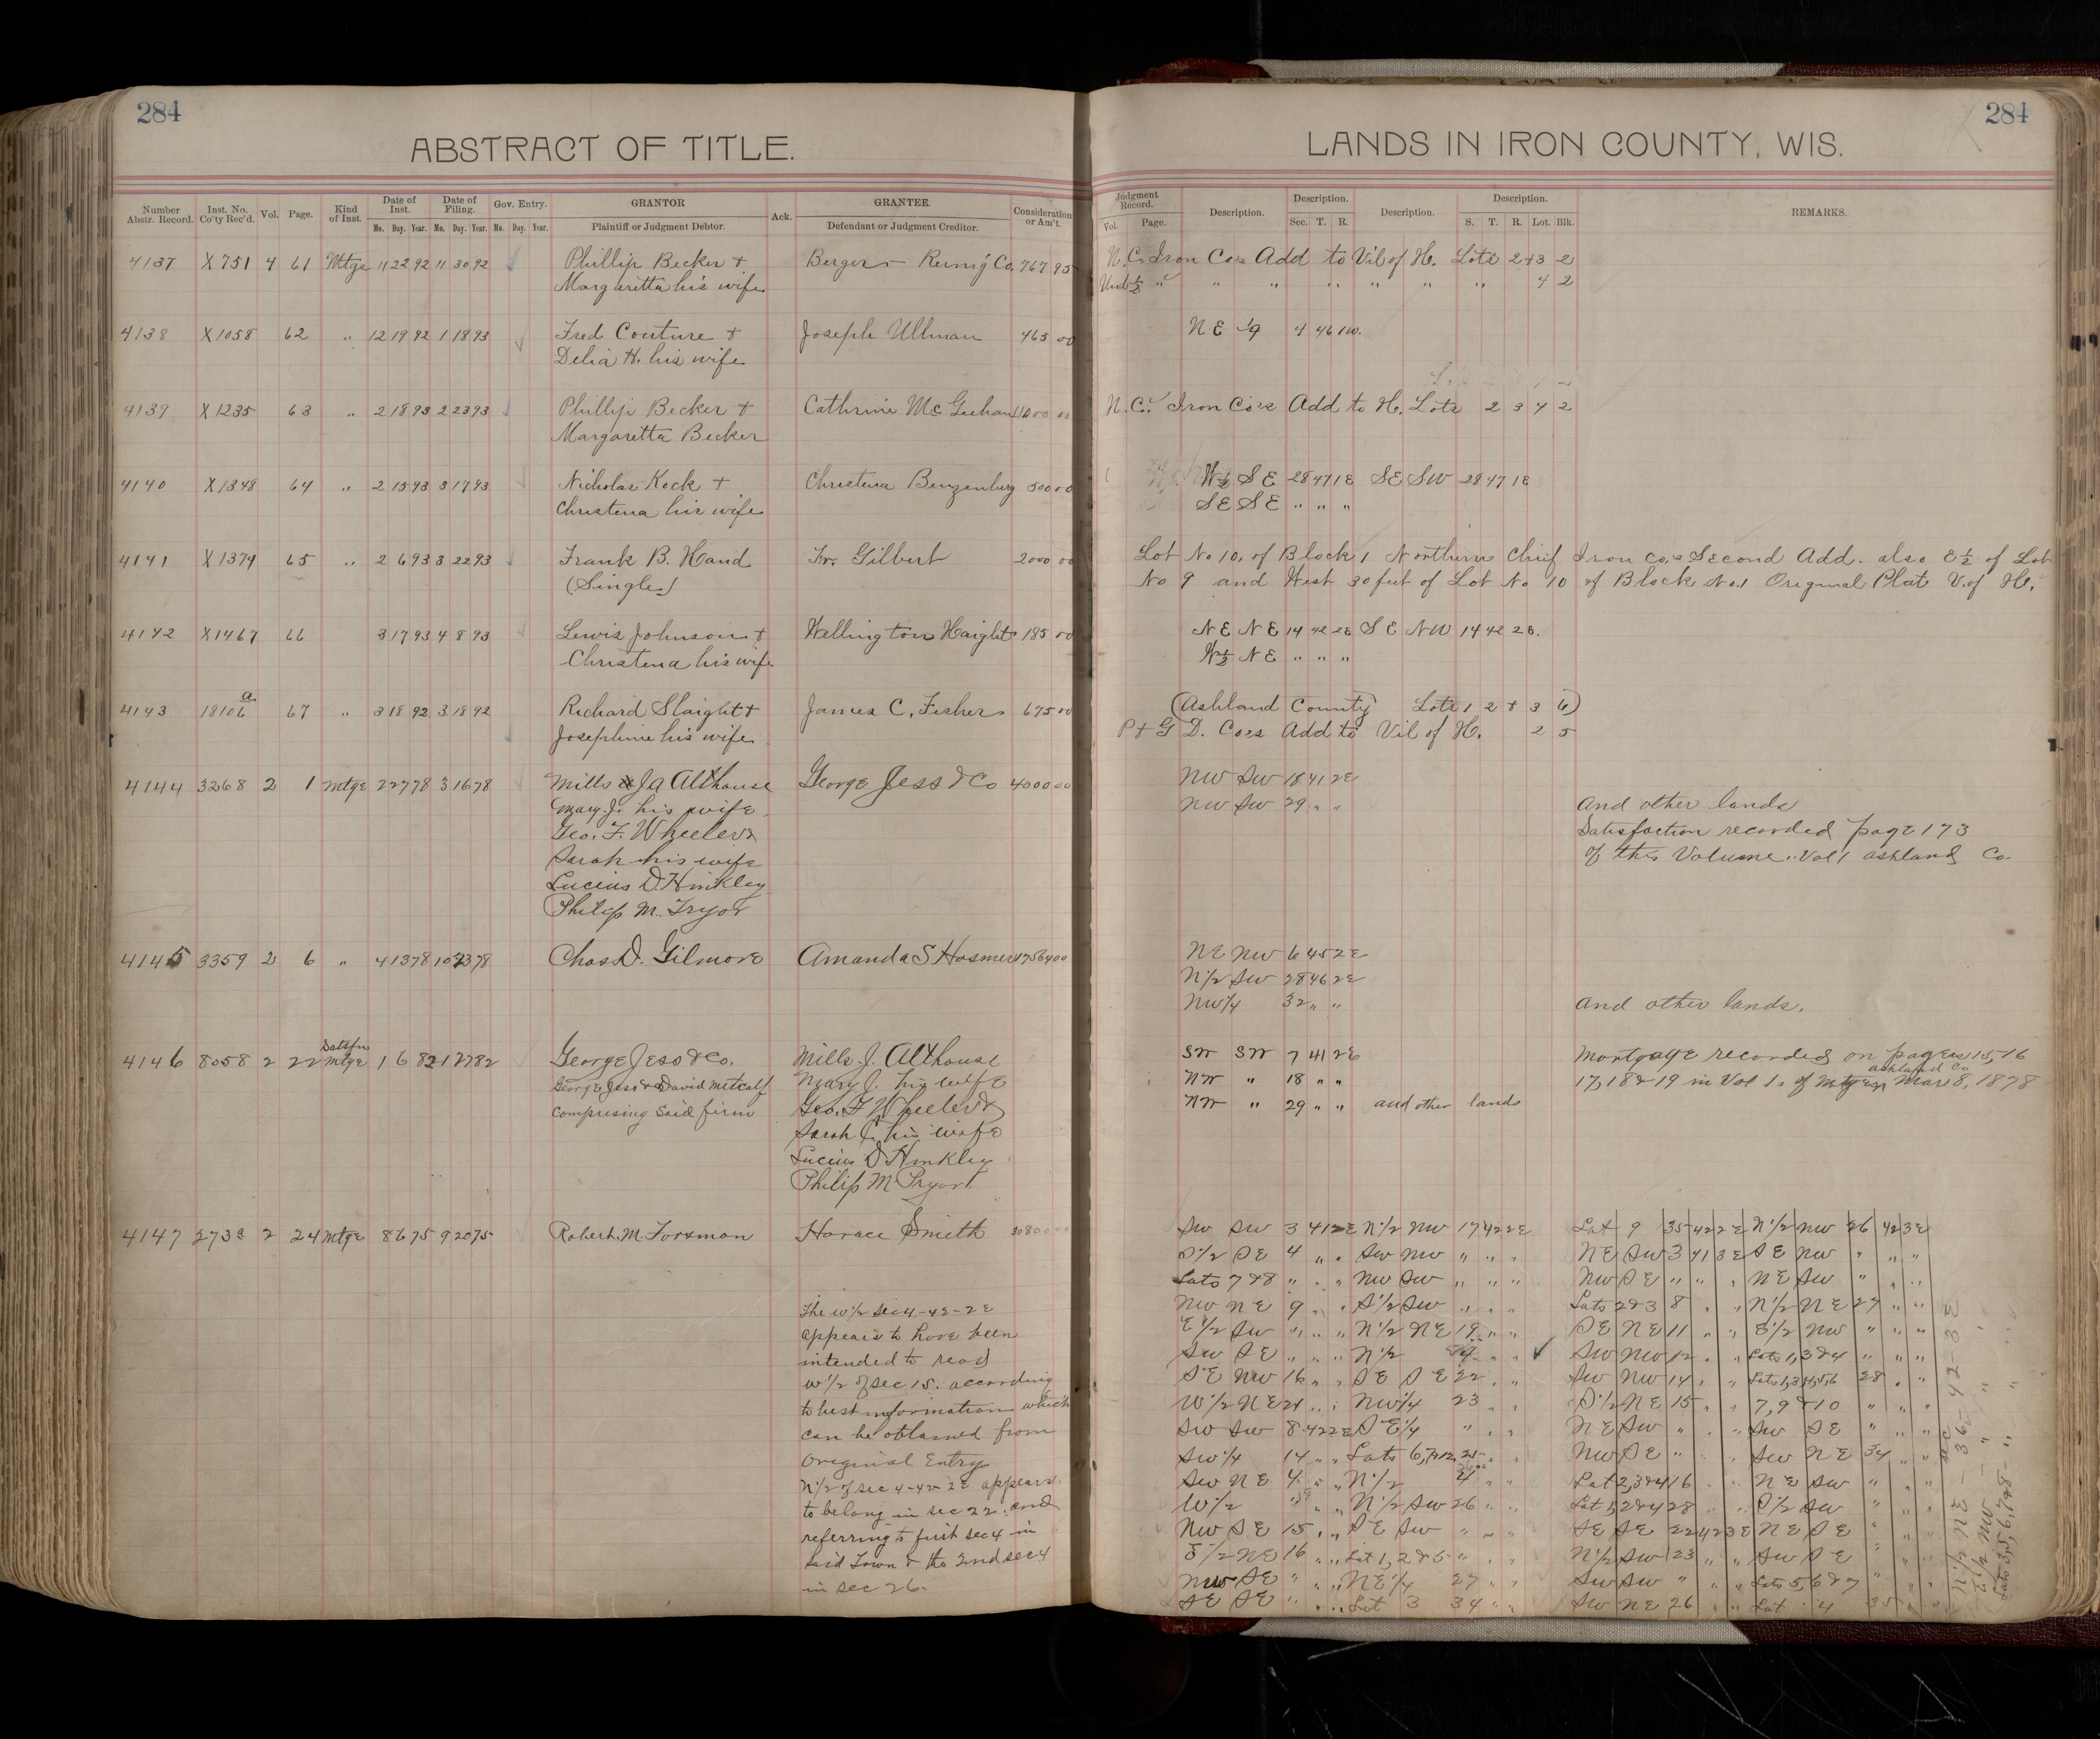 284
ABSTRACT OF TITLE.
Number Abstr. Record. Inst. No. Co'ty Rec'd. Vol. Page. Kind of Inst. Date of Inst. Date of Filing. Gov. Entry. GRANTOR Ack. GRANTEE. Consideration or Am't.
Mo. Day. Year. Mo. Day. Year. No. Day. Year. Plaintiff or Judgment Debtor. Defendant or Judgment Creditor.
4137 X751 4 61 Mtge 11 22 92 11 30 92 Phillip Becker + 767 95
Margaretta his wife
4138 X1058 62 " 12 19 92 1 18 93 Fred Couture + Joseph Ullman 465 00
Delia H. his wife
4139 X1235 63 " 2 18 93 2 23 93 Phillip Becker + Cathrine Mc Geehan 00
Margaretta Becker
4140 X1348 64 " 2 15 93 3 17 93 Nicholas Kock + Christena Benzenberg 500 00
Christena his wife
4141 X1374 65 " 2 6 93 3 22 93 Frank B. Hand Gilbert 2000 00
(Single)
4142 X1467 66 3 17 93 4 8 93 Lewis Johnson + Wellington Haight 185 00
Christena his wife
4143 18106 a 67 " 3 18 92 3 18 92 Richard Slaight + James C. Fisher 675 00
Josephine his wife
4144 3268 2 1 Mtge 2 27 78 3 16 78 Mills Althouse George Jess & Co 4000 00
Mary J. his wife
Geo. F. Wheeler &
Sarah his wife
Lucius D Hinkley
Philip M. Tryor
4145 3359 2 6 " 4 13 78 Chas D. Gilmore Amanda S Hosmer
4146 8058 2 22 Satisfn Mtge 1 6 82 1 27 82 George Jess & Co. Mills J. Althouse
George Jess & David Metcalf Mary J. his wife
Comprising said firm Geo. F Wheeler &
Sarah C. his wife
Lucius D Hinkley
Philip M Pryor
4147 2 24 Mtge 8 6 75 9 20 75 Robert M. Forsman Horace Smith
The W 1/2 Sec 4-42-2E
appears to have been
intended to read
W 1/2 of sec 15. according
to best information which
can be obtained from
Original Entry
N 1/2 of sec 4-42-2E appears
to belong in sec 22. and
referring to first sec 4 in
said Town & the 2nd sec 4
in sec 26.
284
LANDS IN IRON COUNTY, WIS.
Judgment Record. Description. Description. Description. Description. REMARKS.
Vol. Page. Sec. T. R. S. T. R. Lot. Blk.
N.C. Iron Co's Add to Vil of H. Lots 2+3 2
Und 1/2 " " " " " " " 4 2
NE 1/4 4 46 1W.
N.C. Iron Co's Add to H. Lots 2 3 4 2
W 1/2 SE 28 47 1E SE SW 28 47 1E
SE SE " " "
Lot No 10, of Block 1 Northern Chief Iron Co.'s Second Add. also E 1/2 of Lot
No 9 and West 30 feet of Lot No 10 of Block No.1 Original Plat V. of H.
NE NE 14 42 2E SE NW 14 42 2E.
W 1/2 NE " " "
(Ashland County Lots 1 2 + 3 6)
P + G D. Co's Add to Vil of H. 2 5
NW SW 18 41 2E
NW SW 29 " " and other lands
Satisfaction recorded page 173
of this Volume. Vol 1 Ashland Co.
NE NW 6 45 2E
N 1/2 SW 28 46 2E
NW 1/4 32 " " and other lands.
SW SW 7 41 2E Mortgage recorded on pages 15, 16
NW " 18 " " 17, 18 & 19 in Vol 1 of Mtges Ashland Co Mar 8, 1878
NW " 29 " " and other lands
SW SW 3 41 2E N 1/2 NW 17 42 2E Lot 9 35 42 2E N 1/2 NW 26 42 3E
S 1/2 SE 4 " " SW NW " " " NE SW 3 41 3E SE NW " " "
Lots 7 & 8 " " " NW SW " " " NW SE " " " NE SW " " "
NW NE 9 " " S 1/2 SW " " " Lots 2 & 3 8 " " N 1/2 NE 27 " "
E 1/2 SW " " " N 1/2 NE 19 " " SE NE 11 " " E 1/2 NW " " "
SW SE " " " N 1/2 " " SW NW 12 " " Lots 1, 3 & 4 " " "
SE NW 16 " " SE SE 22 " " SW NW 14 " " 28 " "
W 1/2 NE 21 " " NW 1/4 23 " " S 1/2 NE 15 " " 7, 9 & 10 " " "
SW SW 8 42 2E SE 1/4 " " " NE SW " " " SW SE " " "
SW 1/4 14 " " Lots 25 " " NW SE " " " SW NE 34 " "
SW NE 4 " " N 1/2 4 " " Lot 2, 3 & 4 16 " " NE SW " " "
W 1/2 " " " N 1/2 SW 26 " " Lot 1, 2 & 4 28 " " S 1/2 SW " " "
NW SE 15 " " SE SW " " " SE SE 22 42 3E NE SE " " "
E 1/2 NE 16 " " Lot 1, 2 & 5 " " " N 1/2 SW 23 " " SW SE " " "
NW SE " " " NE 1/4 27 " " SW SW " " " Lots 5, 6 & 7 " " "
SE SE " " " Lot 3 34 " " SW NE 26 " " Lot 4 35 " "
N 1/2 NE - 36 - 42 - 3E
E 1/2 NW - " "
Lots 3, 5, 6, 7 & 8 - " "